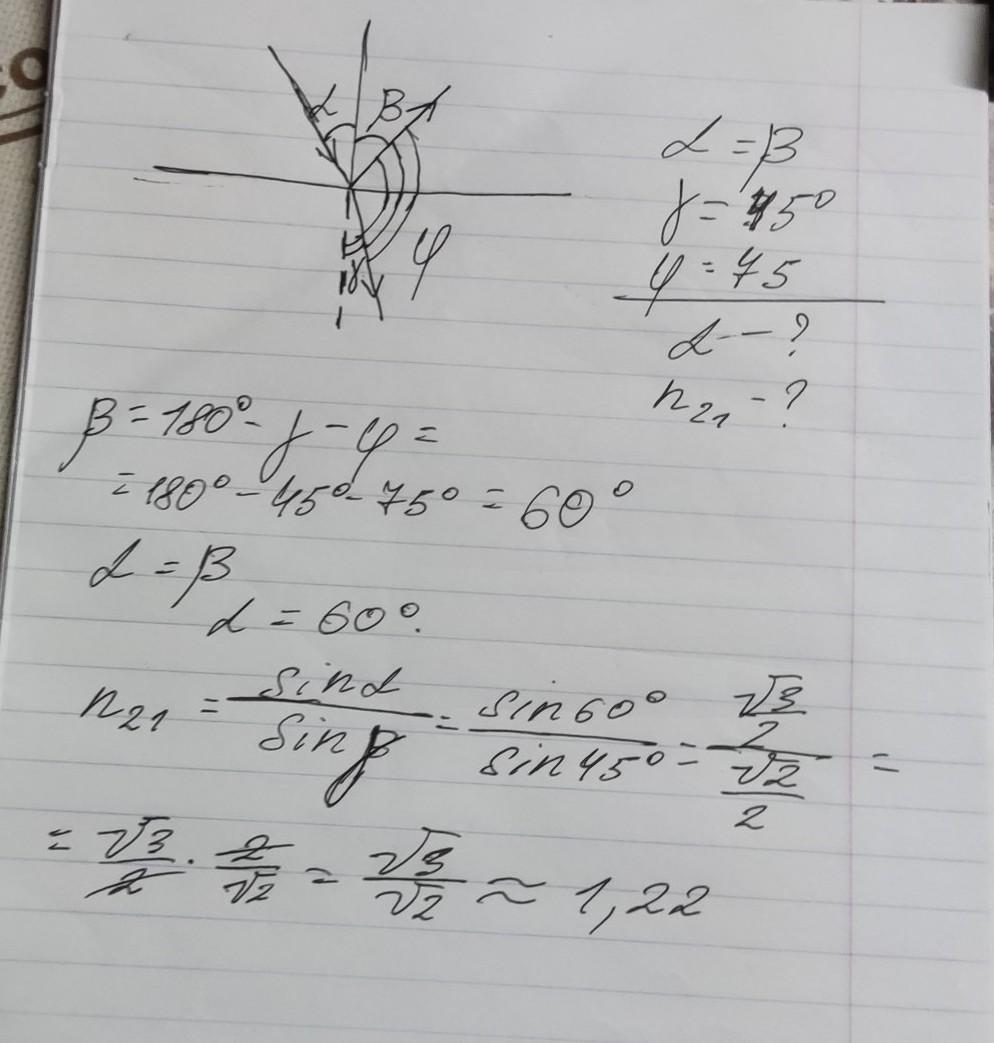 co
α β
γ φ
α = β
γ = 45°
φ = 75
α — ?
n₂₁ - ?
β = 180° - γ - φ =
= 180° - 45° - 75° = 60°
α = β
α = 60°.
n₂₁ = sinα / sinγ = sin60° / sin45° = (√3/2) / (√2/2) =
= √3/2 · 2/√2 = √3/√2 ≈ 1,22